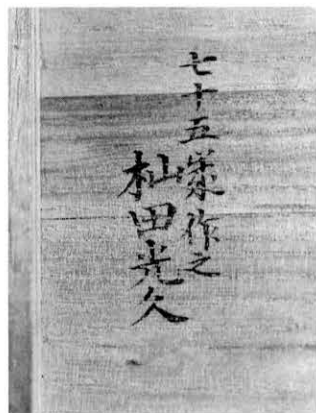 七十五歳作之
杣田光久